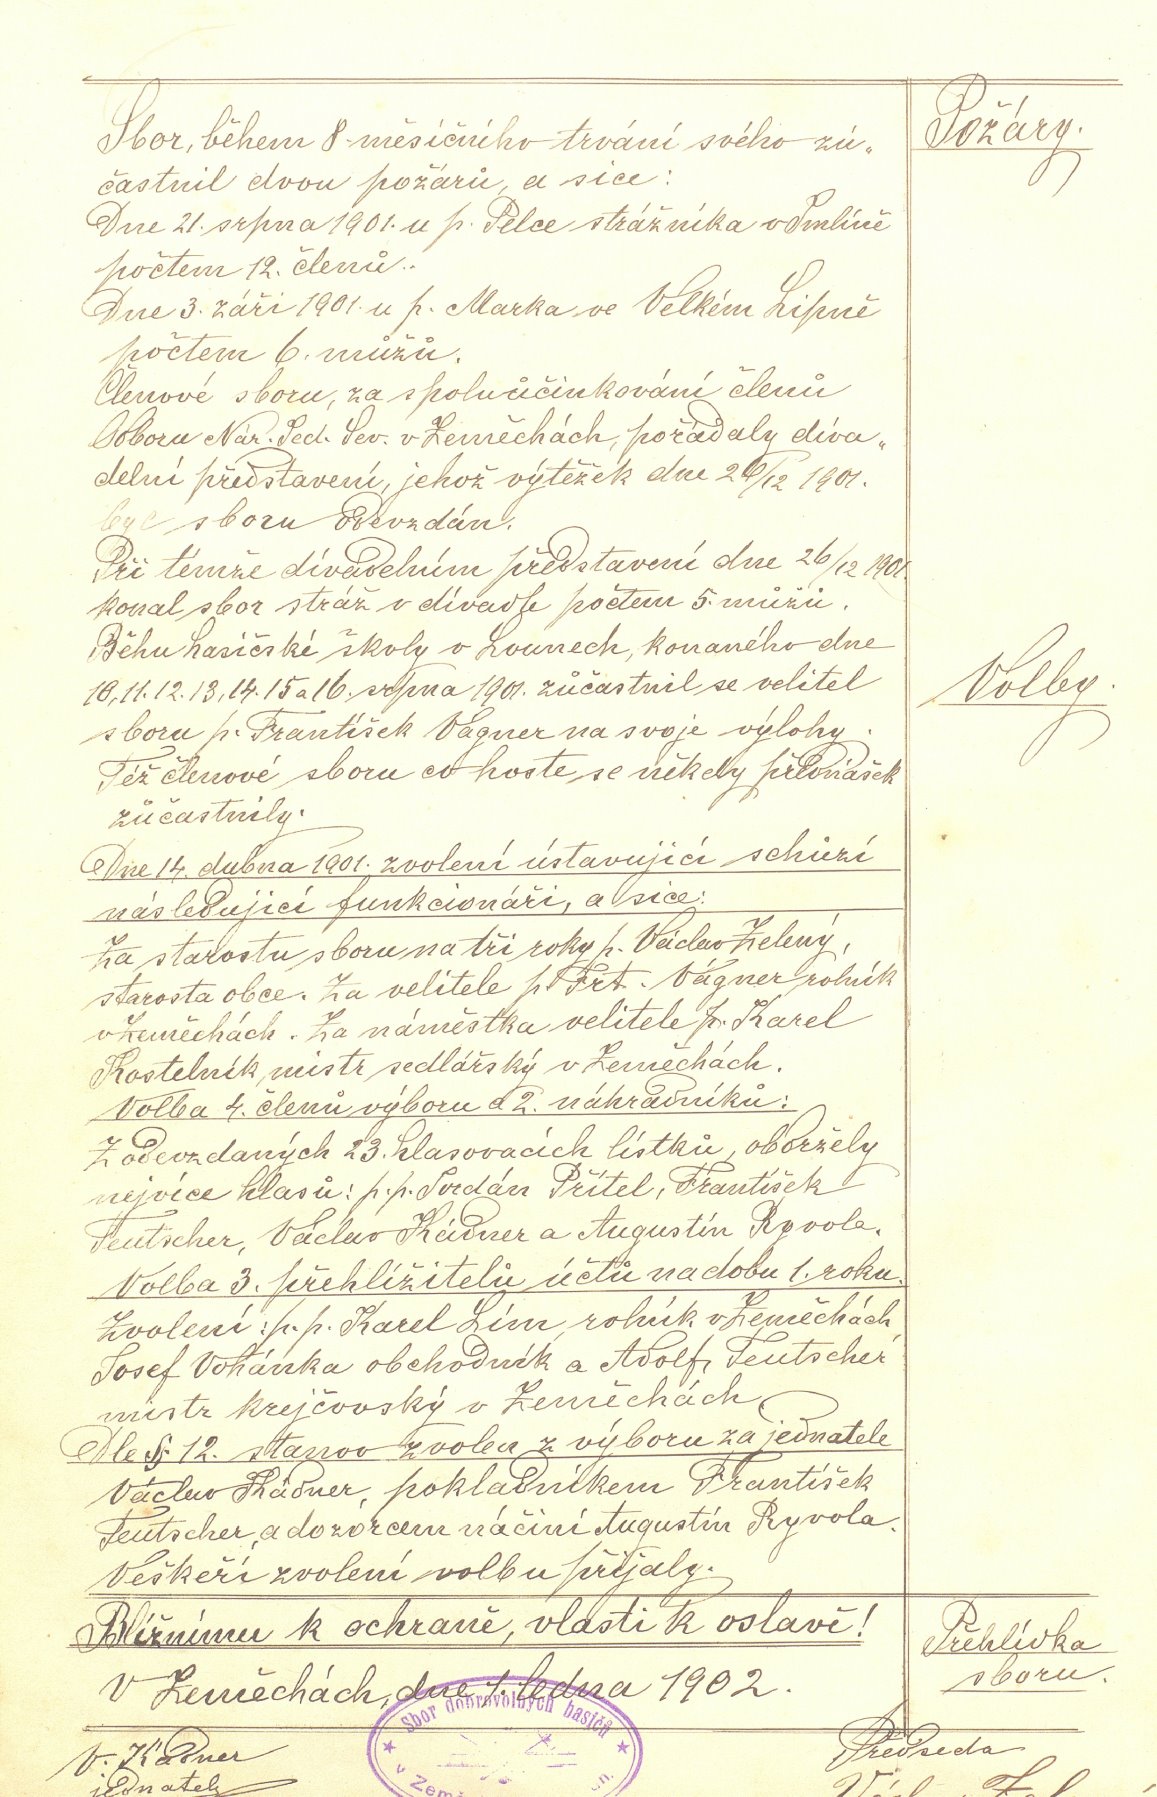 Požáry.
Sbor, během 8 měsíčního trvání svého zú„
častnil dvou požárů, a sice:
Dne 21. srpna 1901. u p. Pelce strážníka v Smlíně
počtem 12. členů..
Dne 3. září 1901. u p. Marka ve Velkém Lipně
počtem 6. můžů.
Členové sboru, za spoluůčinkování členů
Odboru Nár. Jed. Sev. v Zeměchách, pořádaly díva„
delní představení, jehož výtěžek dne 26/12 1901.
byl sboru odevzdán.
Při témže dívadelním představení dne 26/12 1901.
konal sbor stráž v dívadle počtem 5. můžů.
Běhu hasičské školy v Lounech, konaného dne
10, 11. 12. 13, 14. 15 a 16. srpna 1901. zůčastnil se velitel
Volby.
sboru p. František Vágner na svoje výlohy.
Též členové sboru co hoste se někdy přednášek
zůčastnily.
Dne 14. dubna 1901. zvolení ústavující schůzí
následující funkcionáři, a sice:
Za starostu sboru na tři roky p. Václav Zelený,
starosta obce. Za velitele p. Frt. Vágner rolník
v Zeměchách. Za náměstka velitele p. Karel
Kostelník, mistr sedlářský v Zeměchách.
Volba 4. členů výboru a 2. náhradníků:
Z odevzdaných 23. hlasovacích lístků, obdržely
nejvíce hlasů: p.p. Jordán Přítel, František
Teutscher, Václav Kádner a Augustín Ryvola.
Volba 3. přehlížitelů účtů na dobu 1. roku.
Zvolení: p. p. Karel Lím, rolník v Zeměchách
Josef Vohánka obchodník a Adolf, Teutscher
mistr krejčovský v Zeměchách
Dle §. 12. stanov zvolen z výboru za jednatele
Václav Kádner, pokladníkem František
Teutscher, a dozorcem náčiní Augustín Ryvola.
Veškeří zvolení volbu přijaly.
Blížnímu k ochraně, vlasti k oslavě!
Přehlídka
sboru.
V Zeměchách, dne 1. ledna 1902.
Sbor dobrovolných hasičů
v Zem
V. Kádner
jednatel
Předseda